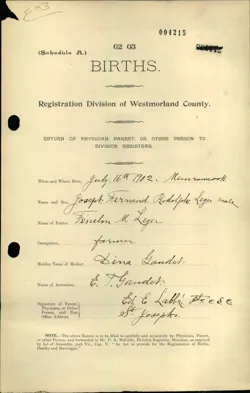 283
004215
(Schedule A.)
62 63
BIRTHS.
Registration Division of Westmorland County.
RETURN OF PHYSICIAN, PARENT, OR OTHER PERSON TO
DIVISION REGISTRAR.
When and Where Born, July 16th 1902.
Name and Sex, Joseph Fernand Rodolphe Leger male
Name of Father, Fenelon M. Leger
Occupation, farmer
Maiden Name of Mother, Dina Gaudet
Name of Accoucheur, E. T. Gaudet
Signature of Parent,
Physician, or Other
Person, and Post
Office Address,
St Josephs
NOTE.—The above Return is to be filled in carefully and accurately by Physician, Parent,
or other Person, and forwarded to
Division Registrar, Moncton, as required by
Act of Assembly,
Cap. V. "An Act to provide for the Registration of Births,
Deaths and Marriages."